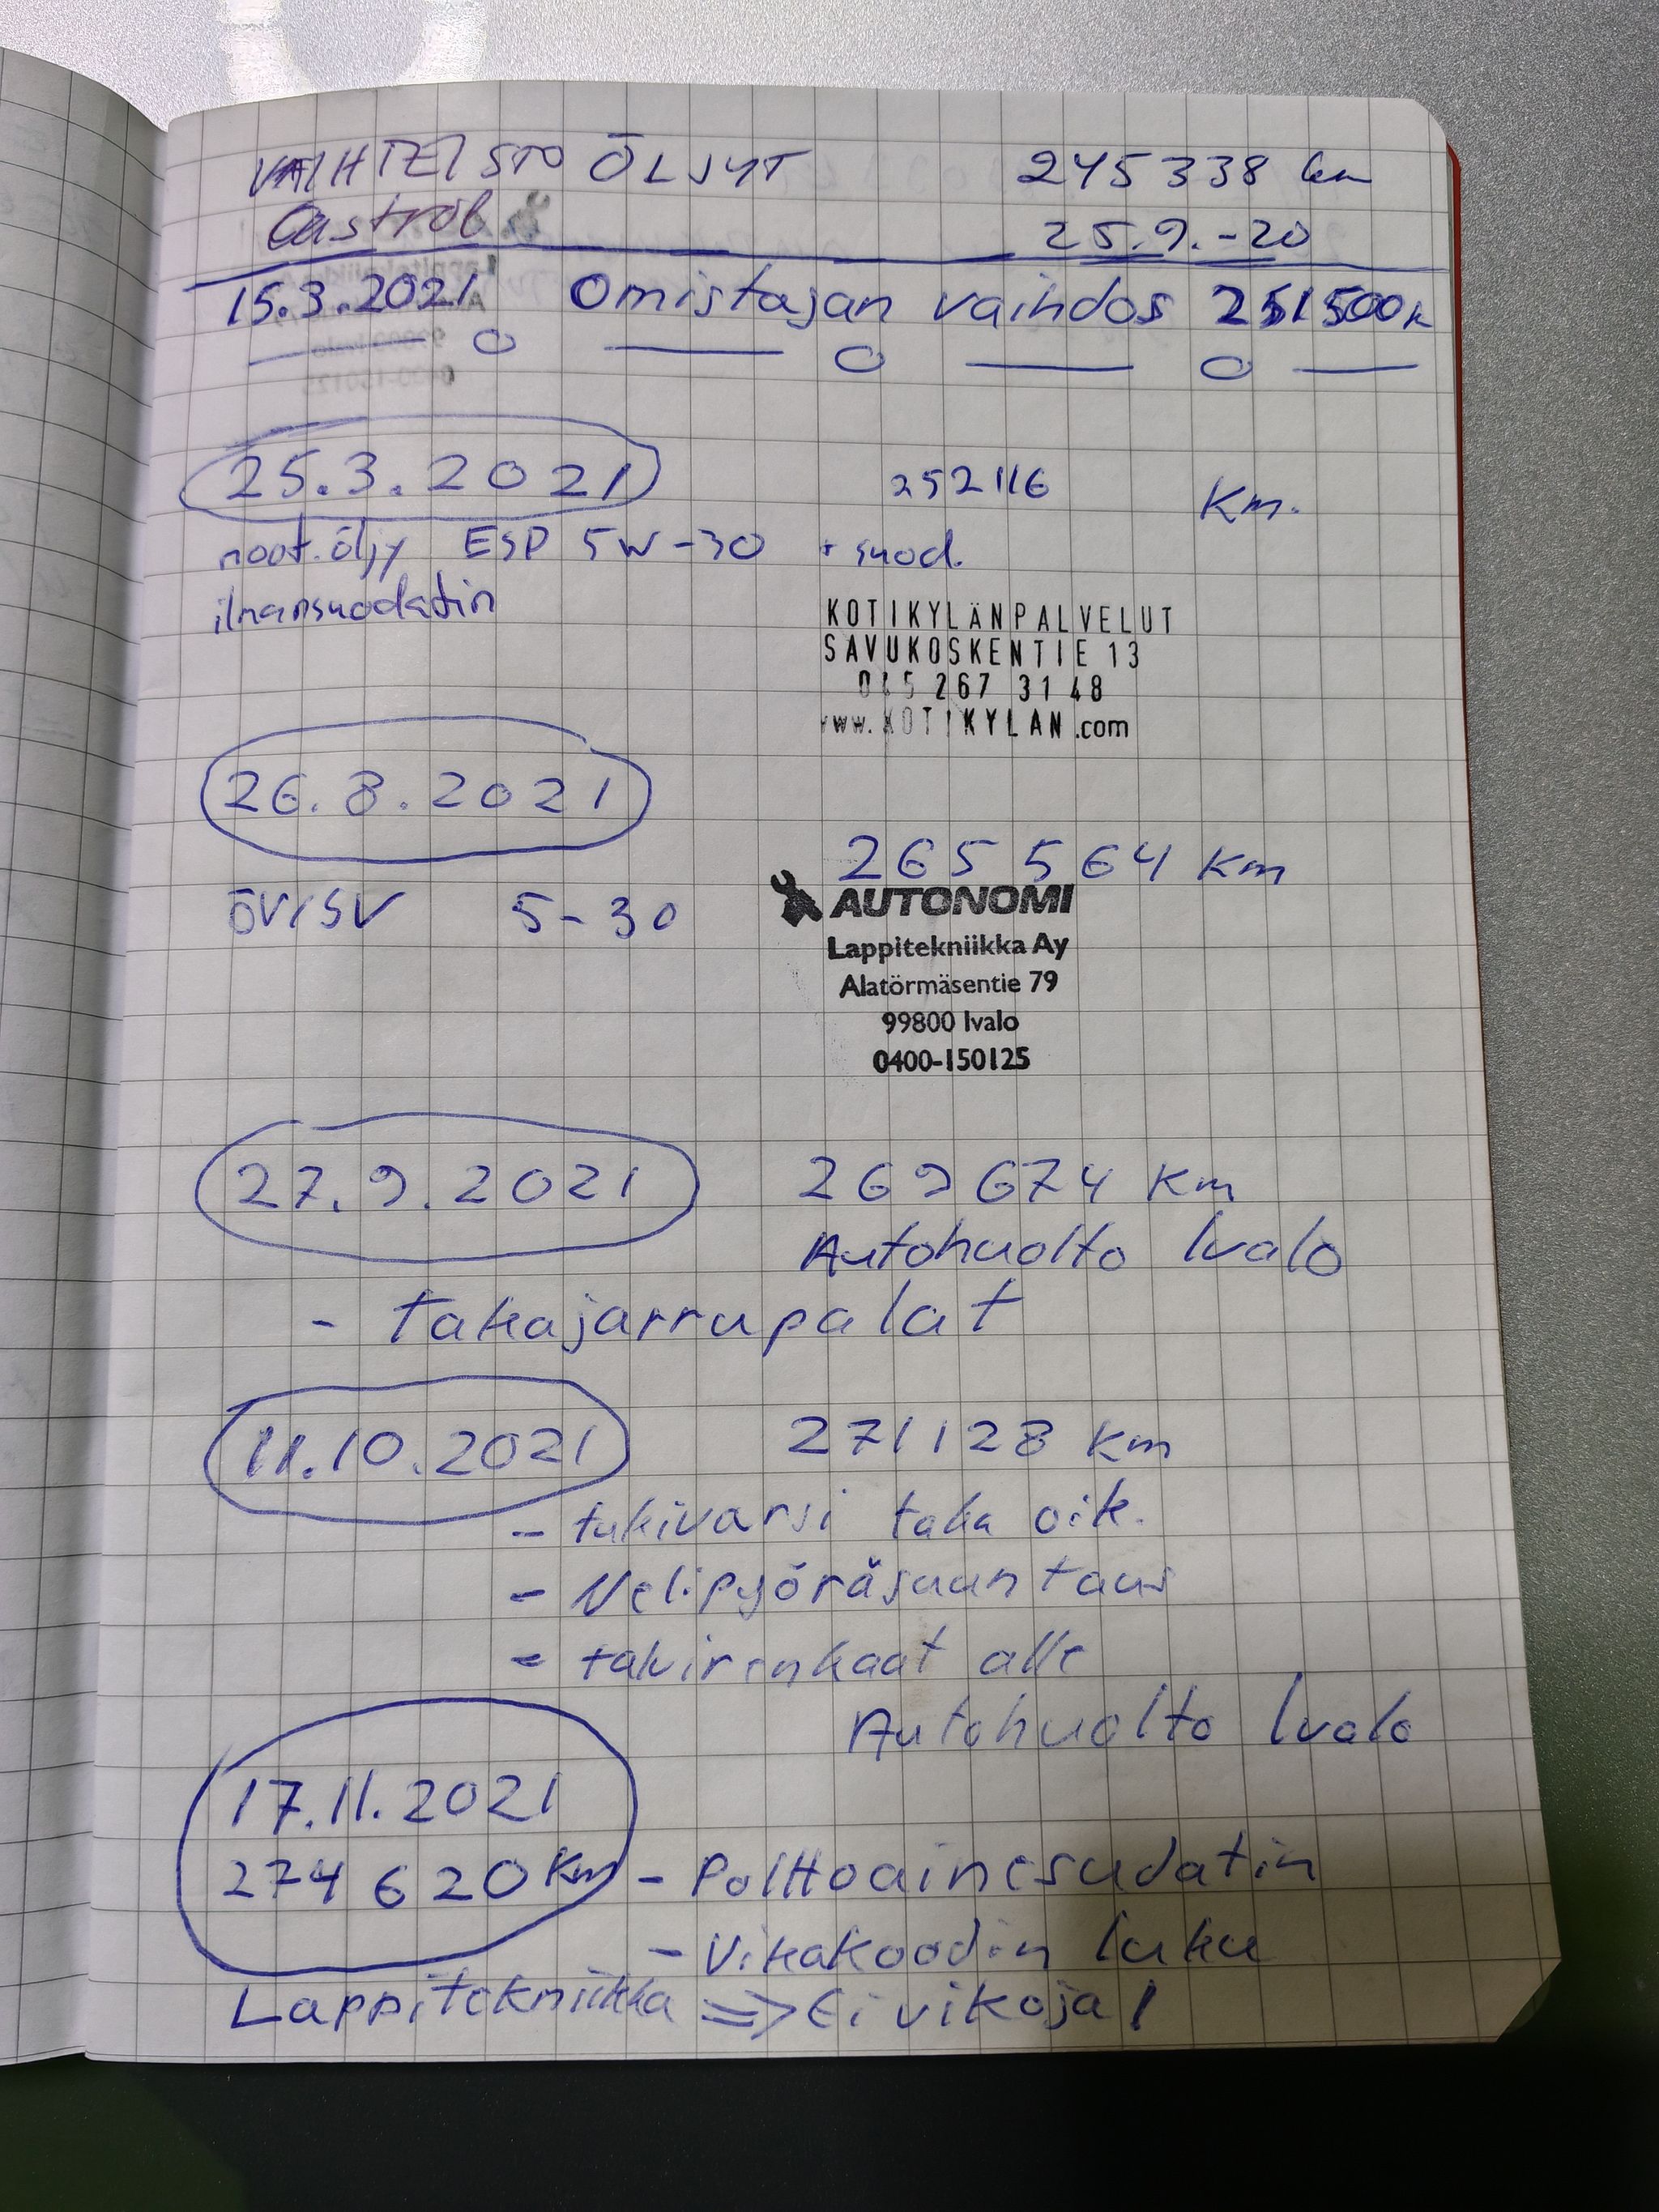 VAIHTEISTO ÖLJYT 245338 km
Castrol 25.9.-20
15.3.2021 Omistajan vaihdos 251500k
25.3.2021 252116 Km.
moot.öljy ESP 5W-30 + suod.
ilmansuodatin
KOTIKYLÄNPALVELUT
SAVUKOSKENTIE 13
045 267 31 48
www.KOTIKYLAN.com
26.8.2021
265 564 Km
ÖV/SV 5-30
AUTONOMI
Lappitekniikka Ay
Alatörmäsentie 79
99800 Ivalo
0400-150125
27.9.2021 269674 Km
Autohuolto Ivalo
- Takajarrupalat
11.10.2021 271128 Km
- tukivarsi taka oik.
- Nelipyöräsuuntaus
- talvirenkaat alle
Autohuolto Ivalo
17.11.2021
274 620 Km - Polttoainesudatin
- Vikakoodin luku
Lappitekniikka => Ei vikoja!